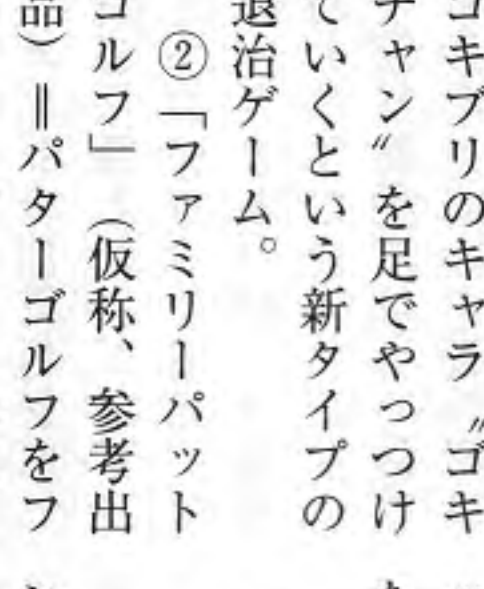 ゴキブリのキャラ〝ゴキ
チャン〟を足でやっつけ
ていくという新タイプの
退治ゲーム。
②「ファミリーパット
ゴルフ」（仮称、参考出
品）＝パターゴルフをフ